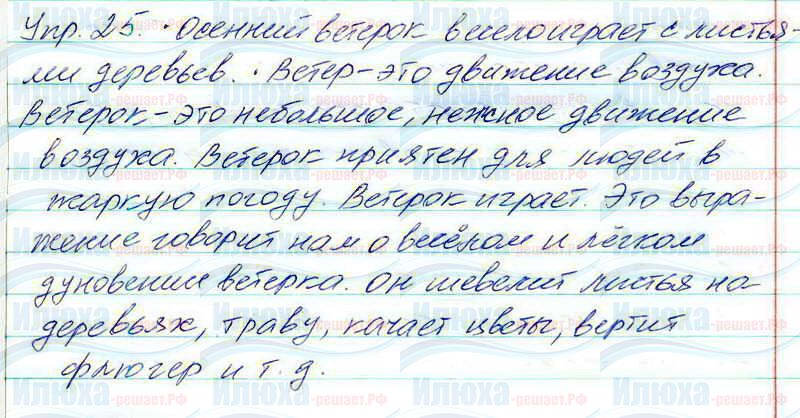 Упр. 25. • Осенний ветерок весело играет с листья-
ми деревьев. • Ветер - это движение воздуха.
Ветерок - это небольшое, нежное движение
воздуха. Ветерок приятен для людей в
жаркую погоду. Ветерок играет. Это выра-
жение говорит нам о весёлом и лёгком
дуновении ветерка. Он шевелит листья на
деревьях, траву, качает цветы, вертит
флюгер и т. д.